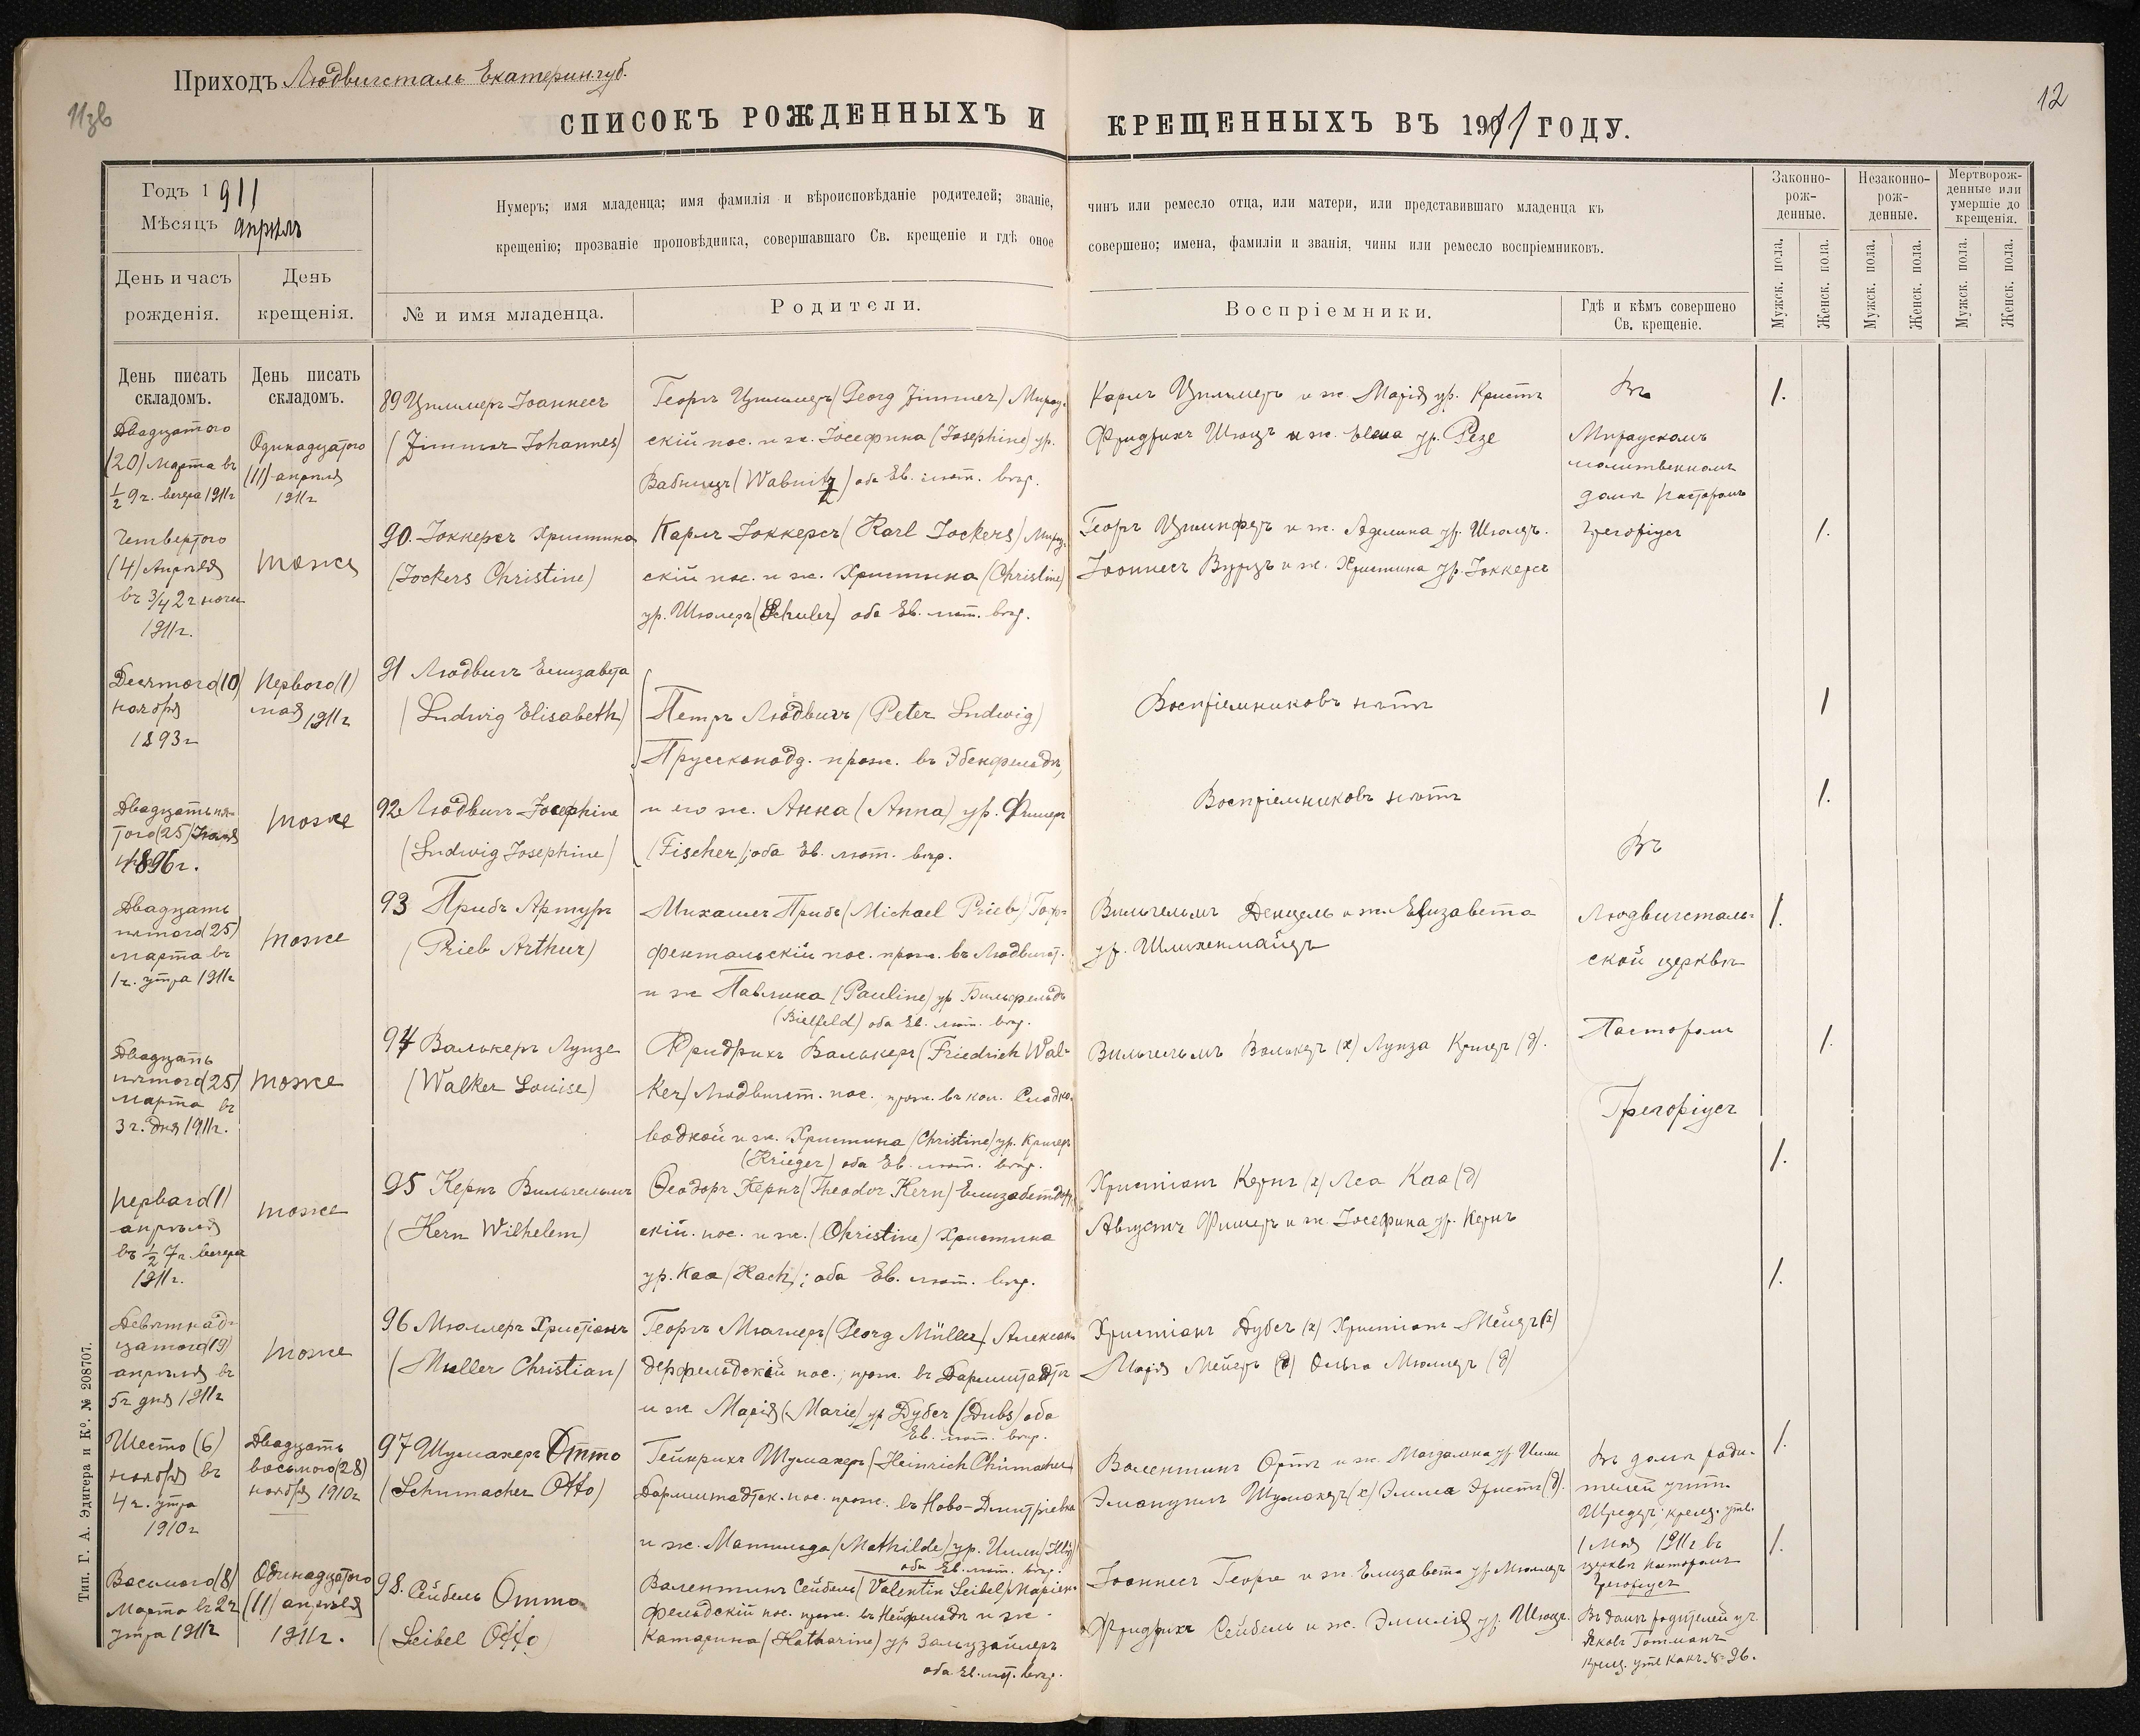 Приходъ Людвигсталь Екатерин. губ.
11зв
12
СПИСОКЪ РОЖДЕННЫХЪ И КРЕЩЕННЫХЪ ВЪ 1911 ГОДУ.
Годъ 1911
Мѣсяцъ апрѣль
День и часъ рожденія.
День крещенія.
Нумеръ; имя младенца; имя фамилія и вѣроисповѣданіе родителей; званіе, чинъ или ремесло отца, или матери, или представившаго младенца къ
крещенію; прозваніе проповѣдника, совершавшаго Св. крещеніе и гдѣ оное совершено; имена, фамиліи и званія, чины или ремесло воспріемниковъ.
№ и имя младенца.
Родители.
Воспріемники.
Гдѣ и кѣмъ совершено Св. крещеніе.
Законно-рож-денные.
Незаконно-рож-денные.
Мертворож-денные или умершіе до крещенія.
Мужск. пола.
Женск. пола.
Мужск. пола.
Женск. пола.
Мужск. пола.
Женск. пола.
День писать складомъ.
День писать складомъ.
Двадцатого
(20) Марта въ
½ 9 ч. вечера 1911г
Одинадцатого
(11) апрѣля
1911г
89 Циммеръ Іоаннесъ
(Zimmer Johannes)
Георгъ Циммеръ (Georg Zimmer) Мирау-
скій пос. и ж. Іосефина (Josephine) ур.
Вабницъ (Wabnitz) оба Ев. лют. вѣр.
Карлъ Циммеръ и ж. Марія ур. Кристъ
Фридрихъ Шюцъ и ж. Елена ур. Резе
Въ
Мираускомъ
молитвенномъ
домѣ Пасторомъ
Грегоріусъ
1.
Четвертого
(4) Апрѣля
въ ¾ 2 ч ночи
1911г.
тоже
90. Іоккерсъ Христина
(Jockers Christine)
Карлъ Іоккерсъ (Karl Jockers) Мирау-
скій пос. и ж. Христина (Christine)
ур. Шюлеръ (Schuler) оба Ев. лют. вѣр.
Георгъ Цимпферъ и ж. Аделина ур. Шюлеръ.
Іоаннесъ Вурцъ и ж. Христина ур. Іоккерсъ
1.
Десятого (10)
ноября
1893г
Первого (1)
мая 1911г
91 Людвигъ Елизавета
(Ludwig Elisabeth)
Петръ Людвигъ (Peter Ludwig)
Прусскоподд. прож. въ Эбенфельдѣ,
Воспріемниковъ нѣтъ
1
Двадцать пя-
того (25)
1896г.
тоже
92 Людвигъ Josephine
(Ludwig Josephine)
и его ж. Анна (Anna) ур. Фишеръ
(Fischer); оба Ев. лют. вѣр.
Воспріемниковъ нѣтъ
Въ
1.
Двадцать
пятого (25)
марта въ
1 ч. утра 1911г
тоже
93 Прибъ Артуръ
(Prieb Arthur)
Михаилъ Прибъ (Michael Prieb)
фентальскій пос. прож. въ Людвигст.
и ж Павлина (Pauline) ур Бильфельдъ
(Bielfeld) оба Ев. лют. вѣр.
Вильгельмъ Денцель и ж. Елизавета
ур. Шлихенмайеръ
Людвигсталь-
ской церквѣ
1.
Двадцать
пятого (25)
марта въ
3 ч. дня 1911г.
тоже
94 Валькеръ Луизе
(Walker Louise)
Фридрихъ Валькеръ (Friedrich Wal-
ker) Людвигст. пос., прож. въ кол. Сладко-
водной и ж. Христина (Christine) ур. Кригеръ
(Krieger) оба Ев. лют. вѣр.
Вильгельмъ Валькеръ (х) Луиза Кригеръ (д).
Пасторомъ
Грегоріусъ
1.
Первого (1)
апрѣля
въ ½ 7 ч. вечера
1911г.
тоже
95 Кернъ Вильгельмъ
(Kern Wilhelem)
Өеодоръ Кернъ (Theodor Kern) Елизабетдорф-
скій. пос. и ж. (Christine) Христина
ур. Каа (Kach); оба Ев. лют. вѣр.
Христіанъ Кернъ (х) Леа Каа (д)
Августъ Фишеръ и ж. Іосефина ур. Кернъ
1.
Девятнад-
цатого (19)
апрѣля въ
5 ч дня 1911г
тоже
96 Мюллеръ Христіанъ
(Muller Christian)
Георгъ Мюллеръ (Georg Müller) Алексан-
дерфельдскій пос., прож. въ Дармштадтѣ
и ж Марія (Marie) ур Дубсъ (Dubs) оба
Ев. лют. вѣр.
Христіанъ Дубсъ (х) Христіанъ Мейеръ (х)
Марія Мейеръ (д) Ольга Мюллеръ (д)
1.
Шесто (6)
ноября въ
4 ч. утра
1910г
Двадцать
восьмого (28)
ноября 1910г
97 Шумахеръ Отто
(Schumacher Otto)
Гейнрихъ Шумахеръ (Heinrich Chumacher)
Дармштадтск. пос. прож. въ Ново-Дмитріевка
и ж. Матильда (Mathilde) ур. Илли (Illi)
оба Ев. лют. вѣр.
Валентинъ Ортъ и ж. Магдалина ур. Илли
Эмануилъ Шумахеръ (х) Эмма Эрнстъ (д).
въ домѣ роди-
телей учит.
Шредеръ; крещ. утв.
1 мая 1911г въ
церквѣ Пасторомъ
Грегоріусъ
1.
Восьмого (8)
Марта въ 2 ч
утра 1911г
Одинадцатого
(11) апрѣля
1911г.
98. Сейбель Отто
(Seibel Otto)
Валентинъ Сейбель (Valentin Seibel) Маріен-
фельдскій пос. прож. въ Нейфельдѣ и ж.
Катарина (Katharine) ур Зальцзайлеръ
оба Ев. лют. вѣр.
Іоаннесъ Георге и ж. Елизавета ур Мюллеръ
Фридрихъ Сейбель и ж. Эмилія ур. Шюцъ.
Въ домѣ родителей уч.
Яковъ Готманъ
Крещ. утв какъ № 96.
Тип. Г. А. Эдигера и Ко. № 208707.